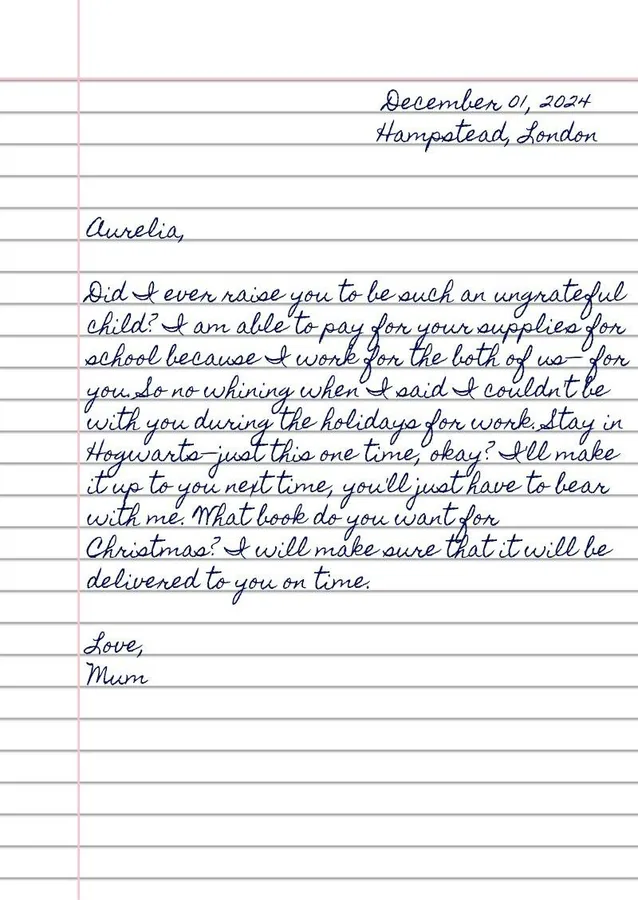 December 01, 2024
Hampstead, London
Aurelia,
Did I ever raise you to be such an ungrateful
child? I am able to pay for your supplies for
school because I work for the both of us— for
you. So no whining when I said I couldn't be
with you during the holidays for work. Stay in
Hogwarts—just this one time, okay? I'll make
it up to you next time, you'll just have to bear
with me. What book do you want for
Christmas? I will make sure that it will be
delivered to you on time.
Love,
Mum